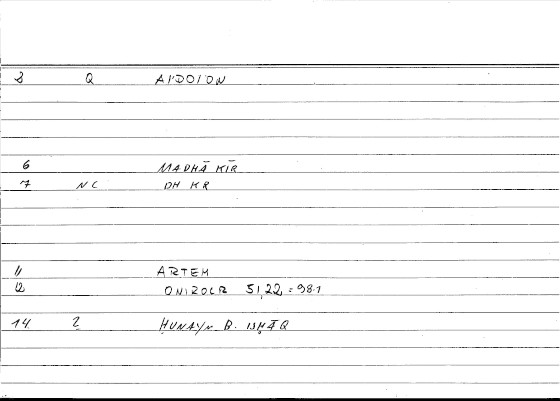 3 Q AI'DOI'ON
6 MADHĀKĪR
7 NC DH KR
11 ARTEM
12 ONIROCR 51,22 = 98.1
14 2 ḤUNAYN B. ISḤĀQ